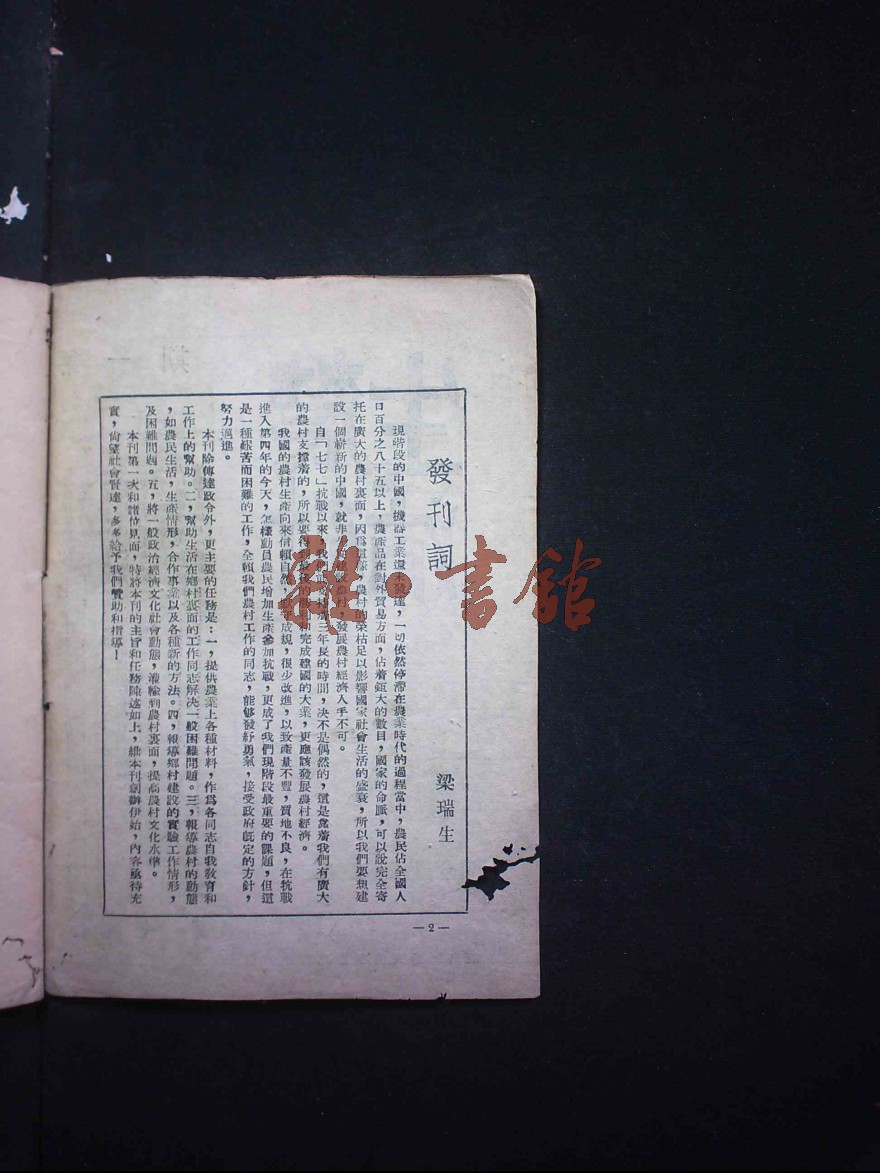 發刊詞
梁瑞生
現階段的中國，機器工業還未發達，一切依然停滯在農業時代的過程當中，農民佔全國人
口百分之八十五以上，農產品在對外貿易方面，佔着鉅大的數目，國家的命脈，可以說完全寄
托在廣大的農村裏面，因爲這樣，農村的榮枯足以影響國家社會生活的盛衰，所以我們要想建
設一個嶄新的中國，就非農村，發展農村經濟入手不可。
自「七七」抗戰以來，我三年長的時間，決不是偶然的，這是靠着我們有廣大
的農村支撐着的，所以要和完成建國的大業，更應該發展農村經濟。
我國的農村生產向來信賴自然，成規，很少改進，以致產量不豐，質地不良，在抗戰
進入第四年的今天，怎樣動員農民增加生產參加抗戰，更成了我們現階段最重要的課題，但這
是一種艱苦而困難的工作，全賴我們農村工作的同志，能够發紓勇氣，接受政府旣定的方針，
努力邁進。
本刊除傳達政令外，更主要的任務是：一，提供農業上各種材料，作爲各同志自我敎育和
工作上的幫助。二，幫助生活在鄉村裏面的工作同志解决一般困難問題。三，報導農村的動態
，如農民生活，生產情形，合作事業以及各種新的方法。四，報導鄉村建設的實驗工作情形，
及困難問題。五，將一般政治經濟文化社會動態，灌輸到農村裏面，提高農村文化水準。
本刊第一次和諸位見面，特將本刊的主旨和任務陳述如上，維本刊創辦伊始，內容亟待充
實，尙望社會賢達，多多給予我們贊助和指導！
—2—
雜·書館